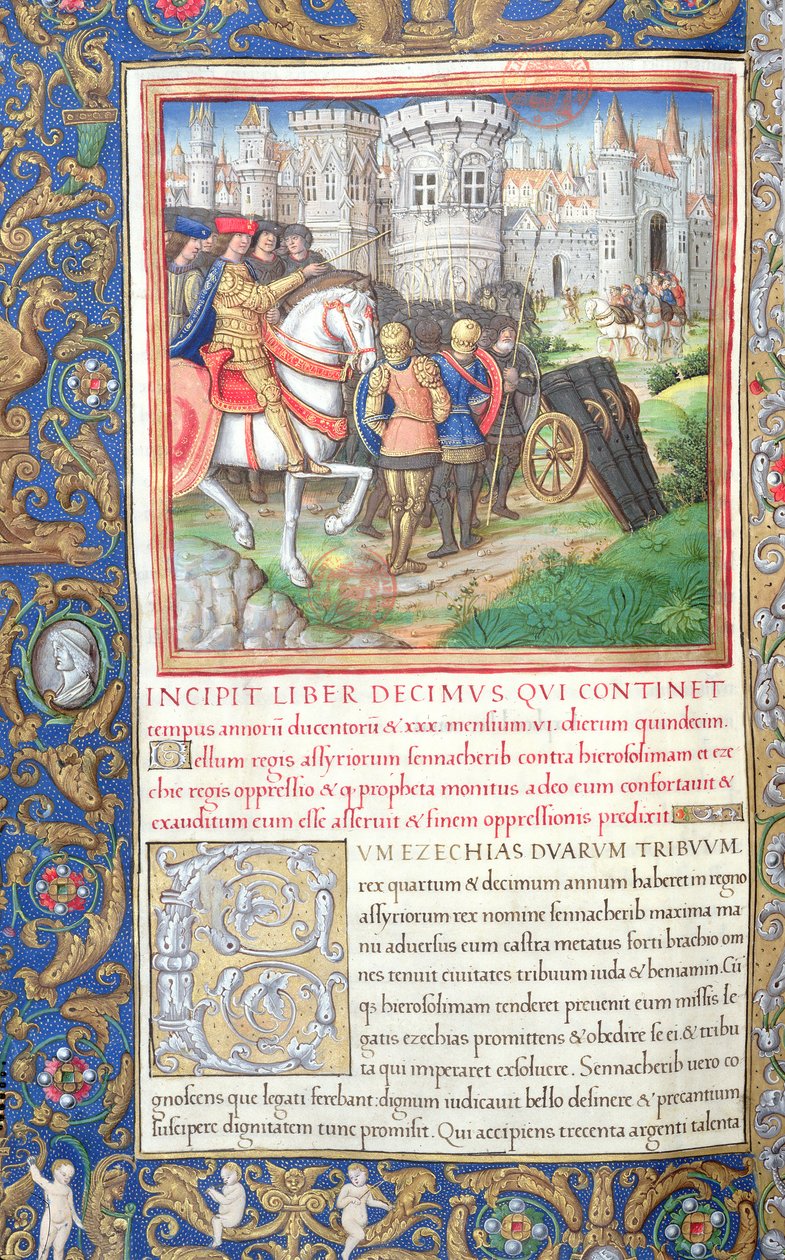 INCIPIT LIBER DECIMVS QVI CONTINET
tempus annorū ducentorū & xxx. mensium VI. dierum quindecim.
Bellum regis assyriorum sennacherib contra hierosolimam et eze
chie regis oppressio & q. propheta monitus a deo eum confortauit &
exauditum eum esse asseruit & finem oppressionis predixit.
CVM EZECHIAS DVARVM TRIBVVM.
rex quartum & decimum annum haberet in regno
assyriorum rex nomine sennacherib maxima ma
nu aduersus eum castra metatus forti brachio om
nes tenuit ciuitates tribuum iuda & beniamin. Cū
q; hierosolimam tenderet preuenit eum missis le
gatis ezechias promittens & obedire se ei. & tribu
ta qui imperaret exsoluere. Sennacherib uero co
gnoscens que legati ferebant: dignum iudicauit bello desinere & precantium
suscipere dignitatem tunc promisit. Qui accipiens trecenta argenti talenta